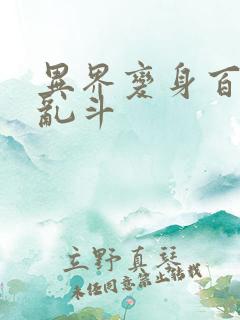 異界變身百
亂斗
立野真琴
未经同意禁止转载